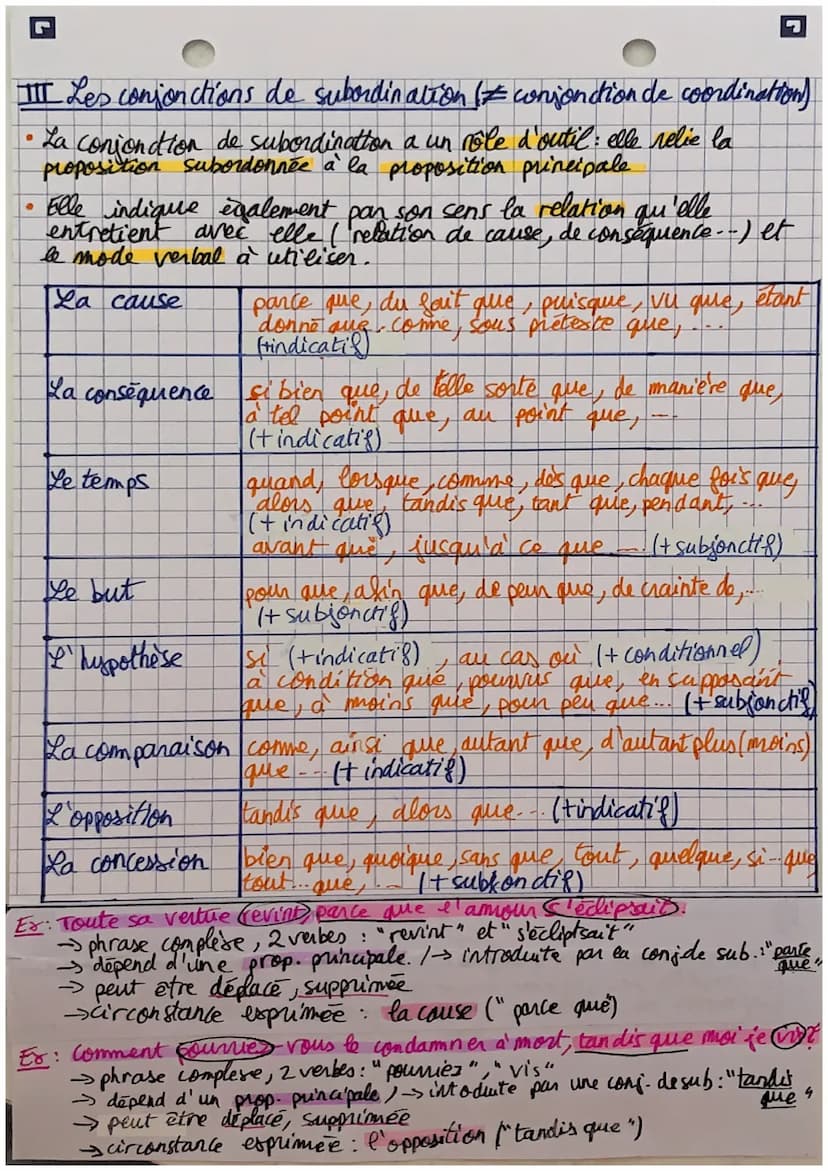 III Les conjonctions de subordination (≠ conjonction de coordination)
• La conjonction de subordination a un rôle d'outil : elle relie la
proposition subordonnée à la proposition principale
• Elle indique également par son sens la relation qu'elle
entretient avec elle ( relation de cause, de conséquence--) et
le mode verbal à utiliser.
La cause
parce que, du fait que, puisque, vu que, étant
donné que, comme, sous préteste que, ...
(+indicatif)
La conséquence
si bien que, de telle sorte que, de manière que,
à tel point que, au point que, ...
(+ indicatif)
Le temps
quand, lorsque, comme, dès que, chaque fois que,
alors que, tandis que, tant que, pendant, ...
(+ indicatif)
avant que, jusqu'à ce que ... (+ subjonctif)
Le but
pour que, afin que, de peur que, de crainte de,...
(+ subjonctif)
L'hypothèse
si (+indicatif), au cas où (+ conditionnel)
à condition que, pourvus que, en supposant
que, à moins que, pour peu que... (+subjonctif)
La comparaison
comme, ainsi que, autant que, d'autant plus (moins)
que --- (+ indicatif)
L'opposition
tandis que, alors que... (+indicatif)
La concession
bien que, quoique, sans que, tout, quelque, si -- que,
tout...que, ... (+ subjonctif)
Ex: Toute sa vertue revint parce que l'amour s'éclipsait.
→ phrase complèxe, 2 verbes : "revint" et "s'écliptsait"
→ dépend d'une prop. principale. /→ introduite par la conj.de sub. : "parce que"
→ peut être déplacé, supprimée
→ circonstance exprimée : la cause ("parce que")
Ex: Comment pourriez-vous le condamner à mort, tandis que moi je vis?
→ phrase complexe, 2 verbes: "pourriez", "vis"
→ dépend d'un prop. principale / → introduite par une conj. de sub : "tandis que"
→ peut être déplacé, supprimée
→ circonstance exprimée : l'opposition ("tandis que")